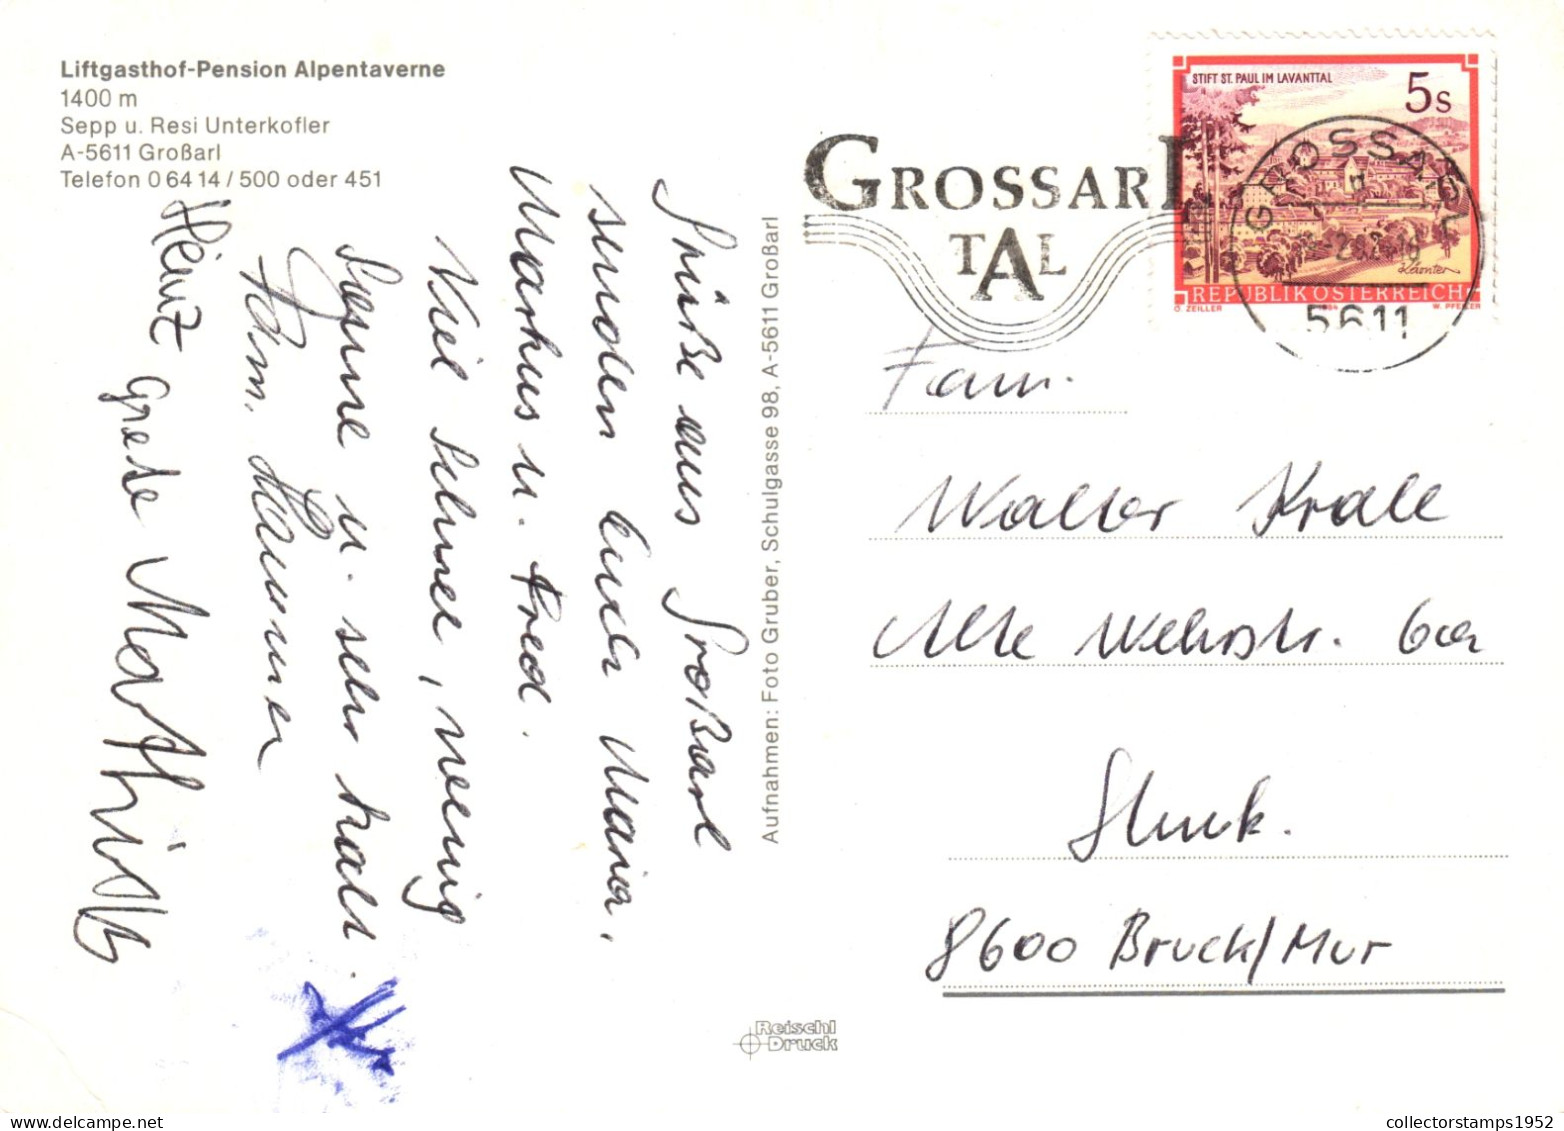 Liftgasthof-Pension Alpentaverne
1400 m
Sepp u. Resi Unterkofler
A-5611 Großarl
Telefon 0 64 14 / 500 oder 451
Grüße aus Großarl
senden Euch Maria,
Markus u. Fred.
Viel Schnee, wenig
Sonne u. sehr kalt.
Fam.
Heinz Grete
Aufnahmen: Foto Gruber, Schulgasse 98, A-5611 Großarl
Reischl
Druck
GROSSARL
TAL
STIFT ST. PAUL IM LAVANTTAL
5s
Kärnten
REPUBLIK ÖSTERREICH
O. ZEILLER
W. PFEILER
GROSSARL
5611
Fam.
Walter Krall
Alte Wehrstr. 6a
8600 Bruck/Mur
collectorstamps1952